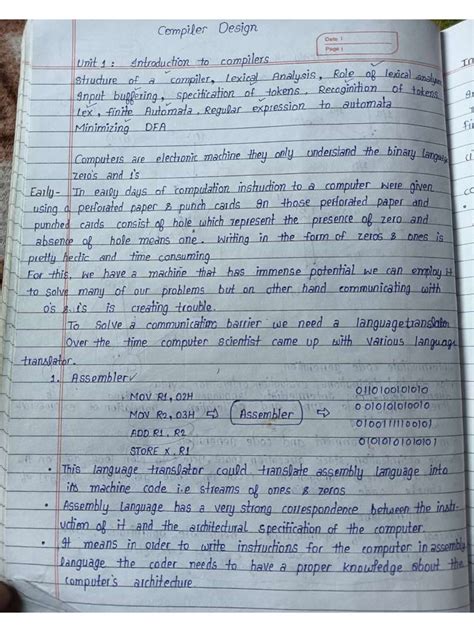 Compiler Design
Date :
Page :
Unit 1 : Introduction to compilers
Structure of a compiler, Lexical Analysis, Role of lexical analyzer
Input buffering, specification of tokens. Recoginition of tokens
Lex, finite Automata. Regular expression to automata
Minimizing DFA
Computers are electronic machine they only understand the binary language
zero's and 1's
Early- In early days of computation instruction to a computer were given
using a perforated paper & punch cards In those perforated paper and
punched cards consist of hole which represent the presence of zero and
absence of hole means one. Writing in the form of zeros & ones is
pretty hectic and time consuming
For this, we have a machine that has immense potential we can employ it
to solve many of our problems but on other hand communicating with
0's & 1's is creating trouble.
To solve a communication barrier we need a language translator
Over the time computer scientist came up with various language
translator.
1. Assembler
MOV R1, 02H
MOV R2, 03H ⇨ Assembler ⇨
ADD R1, R2
STORE X, R1
011010010 1010
0 01010101010
010011111 00101
010101010 10101
• This language translator could translate assembly language into
its machine code i.e streams of ones & zeros
• Assembly Language has a very strong correspondence between the inst-
uction of it and the architectural specification of the computer.
• It means in order to write instructions for the computer in assembly
language the coder needs to have a proper knowledge about the
computer's architecture